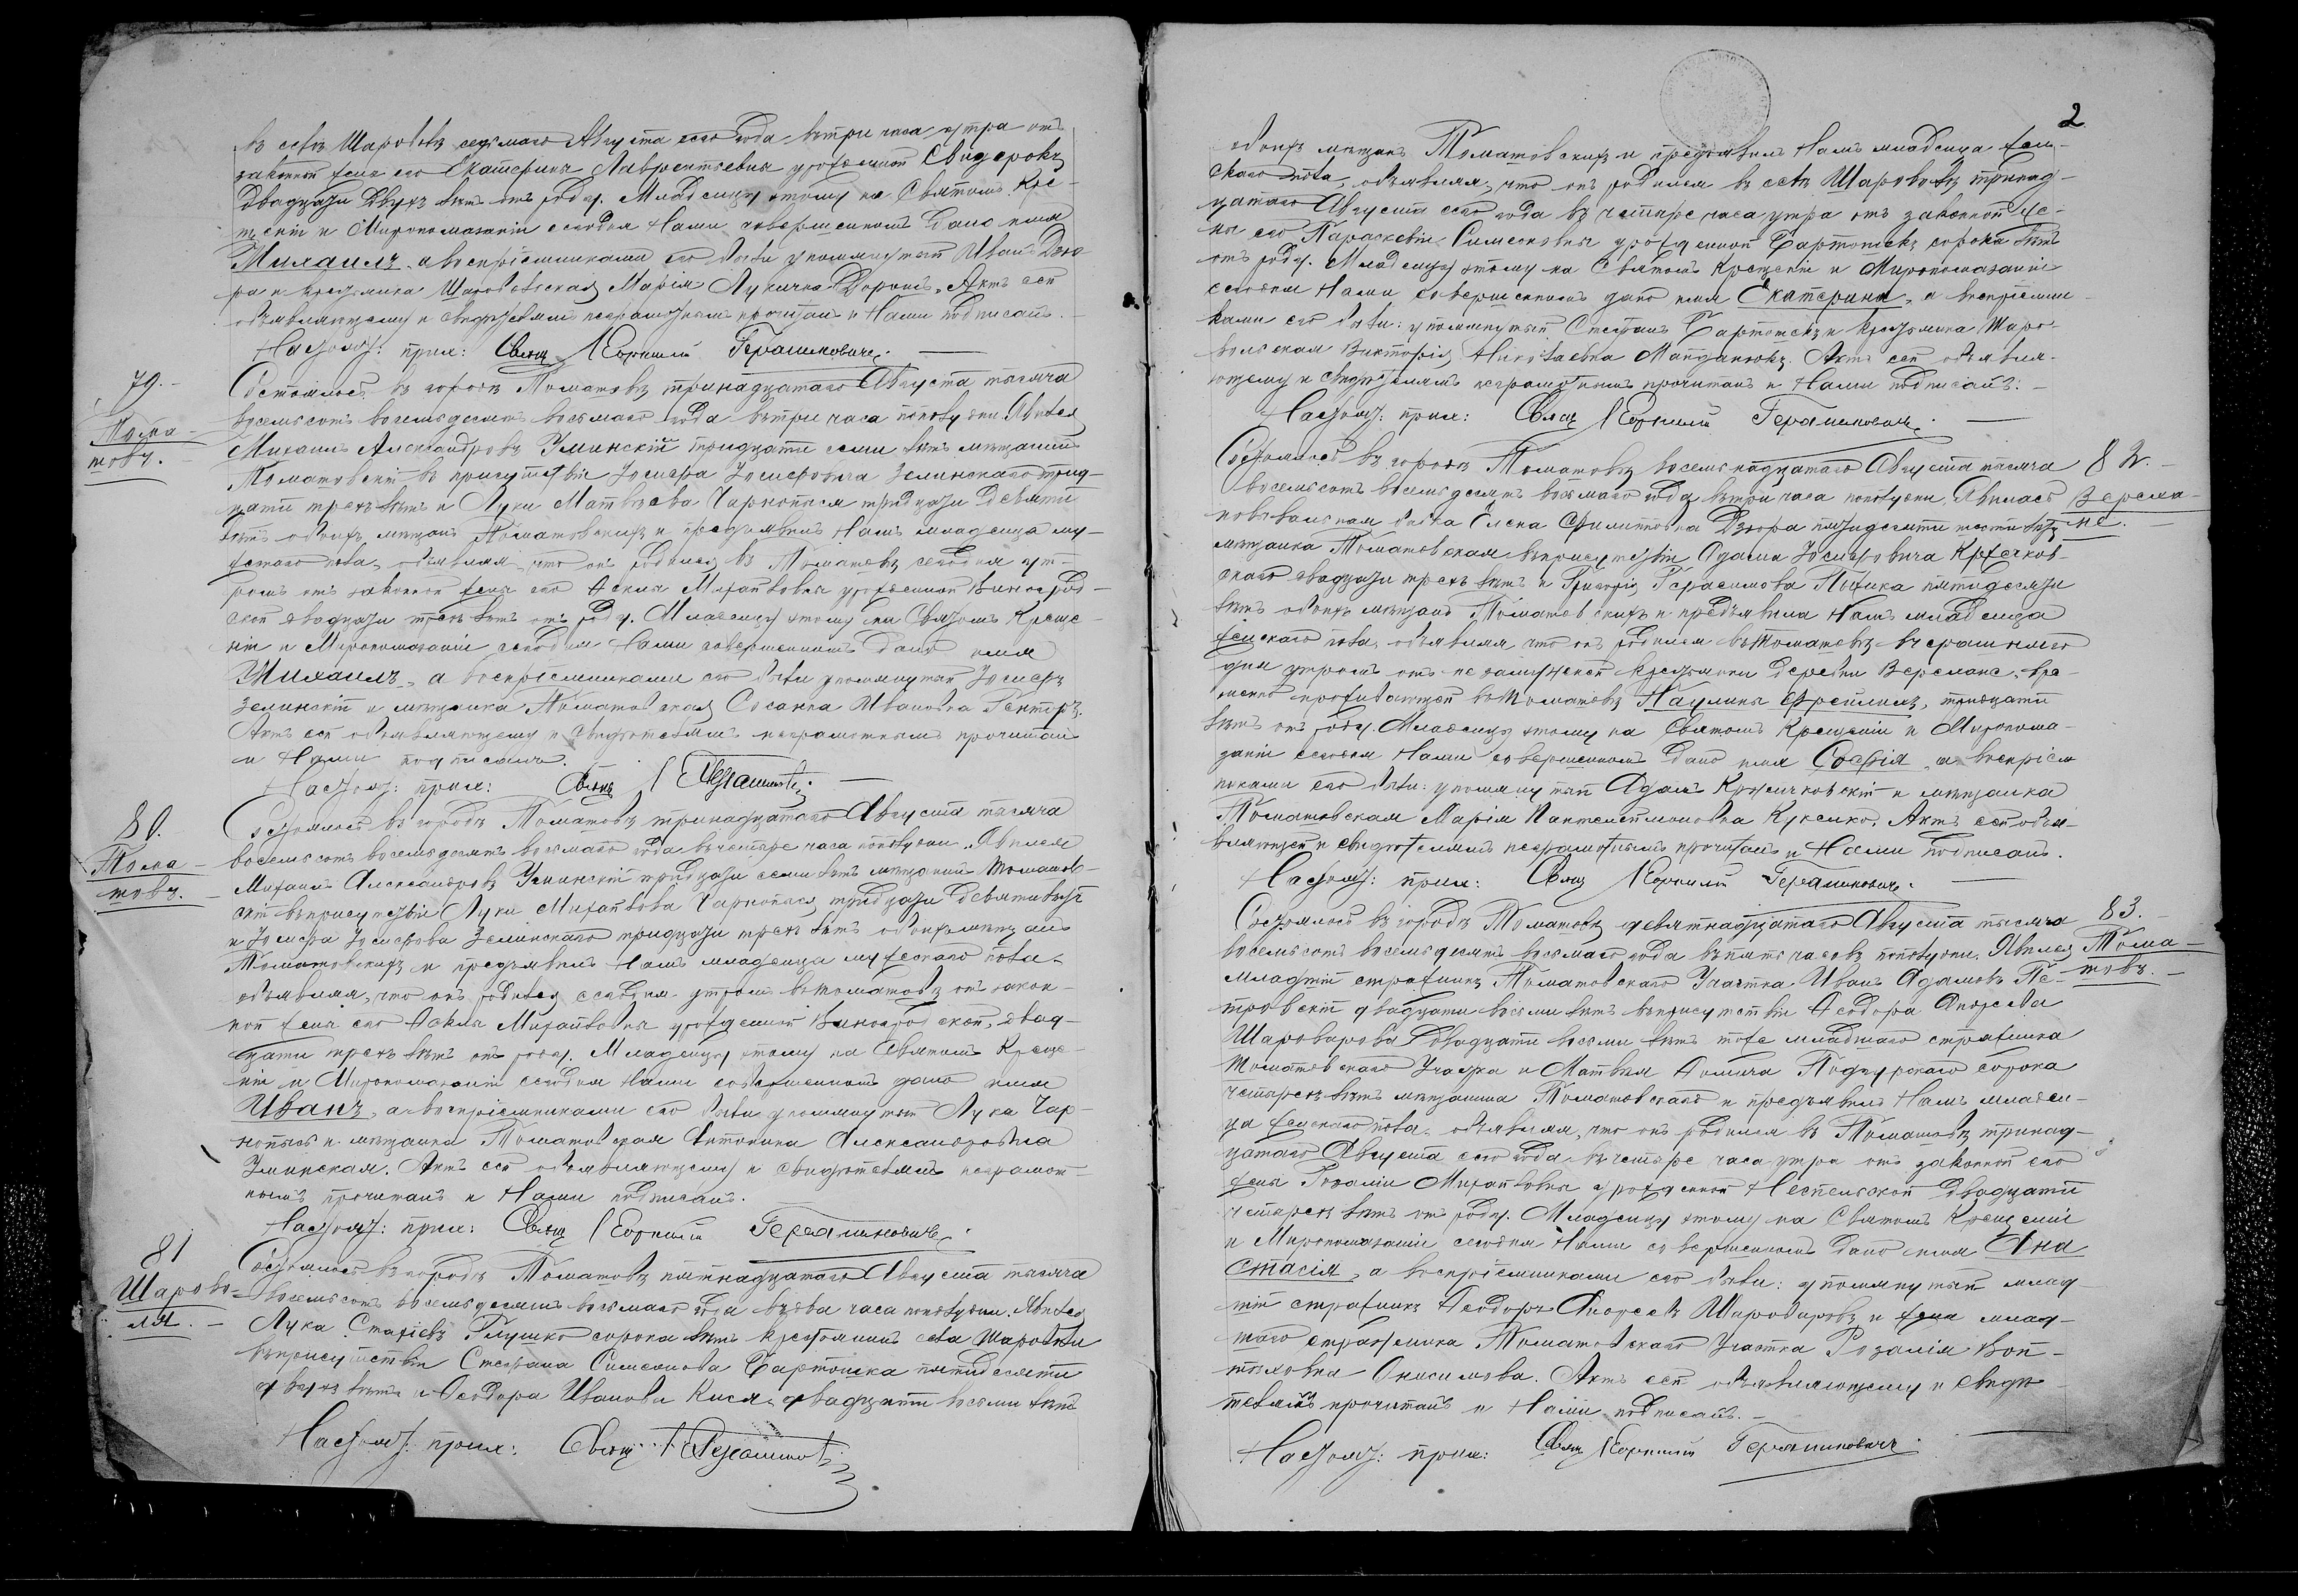 въ селѣ Шаровкѣ седьмаго Августа сего года въ три часа утра отъ
законной жены его Екатерины Лаврентьевны урожденной Свидерокъ
двадцати двухъ лѣтъ отъ роду. Младенцу этому на Святомъ Кре-
щеніи и Миропомазаніи сегодня Нами совершенномъ дано имя
Михаилъ, а воспріемниками его были упомянутый Иванъ Дзю-
ра и крестьянка Шаровольская Марія Лукична Дорошъ. Актъ сей
объявляющему и свидѣтелямъ неграмотнымъ прочитанъ и Нами подписанъ.
Настоят: прих: Свящ Корнилій Герашиновичъ.
79.
Тома-
шовъ.
Состоялось въ городѣ Томашовѣ тринадцатаго Августа тысяча
восемьсотъ восемьдесятъ восьмаго года въ три часа пополудни. Явился
Михаилъ Александровъ Уминскій тридцати семи лѣтъ мѣщанинъ
Томашовскій въ присутствіи Іосифа Іосифовича Зелинскаго трид-
цати трехъ лѣтъ и Луки Матвѣева Чарнопыся тридцати девяти
лѣтъ обоихъ мѣщанъ Томашовскихъ и предъявилъ Намъ младенца му-
жескаго пола, объявляя, что онъ родился въ Томашовѣ сегодня ут-
ромъ отъ законной жены его Феклы Михайловны урожденной Виноград-
ской двадцати трехъ лѣтъ отъ роду. Младенцу этому на Святомъ Креще-
ніи и Миропомазаніи сегодня Нами совершенномъ дано имя
Михаилъ, а воспріемниками его были упомянутый Іосифъ
Зелинскій и мѣщанка Томашовская Сосанна Ивановна
Актъ сей объявляющему и свидѣтелямъ неграмотнымъ прочитанъ
и Нами подписанъ.
Настоят: прих: Свящ К Герашинов
80.
Тома-
шовъ.
Состоялось въ городѣ Томашовѣ тринадцатаго Августа тысяча
восемьсотъ восемьдесятъ восьмаго года въ четыре часа пополудни. Явился
Михаилъ Александровъ Уминскій тридцати семи лѣтъ мѣщанинъ Томашов-
скій въ присутствіи Луки Михайлова Чарнопыся тридцати девяти лѣтъ
и Іосифа Іосифова Зелинскаго тридцати трехъ лѣтъ обоихъ мѣщанъ
Томашовскихъ и предъявилъ Намъ младенца мужескаго пола,
объявляя, что онъ родился сегодня утромъ въ Томашовѣ отъ закон-
ной жены его Феклы Михайловны урожденной Виноградской, двад-
цати трехъ лѣтъ отъ роду. Младенцу этому на Святомъ Креще-
ніи и Миропомазаніи сегодня Нами совершенномъ дано имя
Иванъ, а воспріемниками его были упомянутый Лука Чар-
нопысь и мѣщанка Томашовская Антонина Александровна
Уминская. Актъ сей объявляющему и свидѣтелямъ неграмот-
нымъ прочитанъ и Нами подписанъ.
Настоят: прих: Свящ Корнилій Герашиновичъ.
81
Шарово-
ля.
Состоялось въ городѣ Томашовѣ пятнадцатаго Августа тысяча
восемьсотъ восемьдесятъ восьмаго года въ два часа пополудни. Явился
Лука Стахіевъ Глушко сорока лѣтъ крестьянинъ села Шаровки
въ присутствіи Стефана Симеонова Бартошка пятидесяти
двухъ лѣтъ и Феодора Иванова Кися двадцати восьми лѣтъ
Настоят: прих: Свящ К Герашинов
2
обоихъ мѣщанъ Томашовскихъ и предъявилъ Намъ младенца жен-
скаго пола, объявляя, что онъ родился въ селѣ Шаровкѣ тринад-
цатаго Августа сего года въ четыре часа утра отъ законной же-
ны его Параскевіи Симеоновны урожденной Бартошекъ сорока лѣтъ
отъ роду. Младенцу этому на Святомъ Крещеніи и Миропомазаніи
сегодня Нами совершенномъ дано имя Екатерина, а воспріемни-
ками его были: упомянутый Стефанъ Бартошекъ и крестьянка Шаро-
вольская Викторія Николаевна Манзанюкъ. Актъ сей объявля-
ющему и свидѣтелямъ неграмотнымъ прочитанъ и Нами подписанъ.
Настоят: прих: Свящ Корнилій Герашиновичъ.
82.
Верема-
не.
Состоялось въ городѣ Томашовѣ восемьнадцатаго Августа тысяча
восемьсотъ восемьдесятъ восьмаго года въ три часа пополудни. Явилась
повивальная бабка Елена Филипповна Дзюра пятидесяти шести лѣтъ
мѣщанка Томашовская въ присутствіи Адама Іосифовича Кржечков-
скаго двадцати трехъ лѣтъ и Григорія Герасимова Пыжика пятидесяти
лѣтъ обоихъ мѣщанъ Томашовскихъ и предъявила Намъ младенца
женскаго пола, объявляя, что онъ родился въ Томашовѣ вчерашняго
дня утромъ отъ незамужней крестьянки деревни Веремане, вре-
менно проживающей въ Томашовѣ Паулины Фрейлихъ, тридцати
лѣтъ отъ роду. Младенцу этому на Святомъ Крещеніи и Миропома-
заніи сегодня Нами совершенномъ дано имя Софія, а воспріем-
никами его были: упомянутый Адамъ Кржечковскій и мѣщанка
Томашовская Марія Пантелеймоновна Кукелко. Актъ сей объя-
вляющей и свидѣтелямъ неграмотнымъ прочитанъ и Нами подписанъ.
Настоят: прих: Свящ Корнилій Герашиновичъ.
83.
Тома-
шовъ.
Состоялось въ городѣ Томашовѣ девятнадцатаго Августа тысяча
восемьсотъ восемьдесятъ восьмаго года въ пять часовъ пополудни. Явился
младшій стражникъ Томашовскаго Участка Иванъ Адамовъ Пе-
тровскій двадцати восьми лѣтъ въ присутствіи Феодора Андреева
Шароварова двадцати восьми лѣтъ тоже младшаго стражника
Томашовскаго Участка и Матвѣя Фомича Подгурскаго сорока
четырехъ лѣтъ мѣщанина Томашовскаго и предъявилъ Намъ младен-
ца женскаго пола, объявляя, что онъ родился въ Томашовѣ тринад-
цатаго Августа сего года въ четыре часа утра отъ законной его
жены Розаліи Михайловны урожденной Неспельской двадцати
четырехъ лѣтъ отъ роду. Младенцу этому на Святомъ Крещеніи
и Миропомазаніи сегодня Нами совершенномъ дано имя Ана-
стасія, а воспріемниками его были: упомянутый млад-
шій стражникъ Феодоръ Андреевъ Шароваровъ и жена млад-
шаго стражника Томашовскаго Участка Розалія Вой-
тиховна Онисимова. Актъ сей объявляющему и свидѣ-
телямъ прочитанъ и Нами подписанъ.
Настоят: прих: Свящ Корнилій Герашиновичъ.